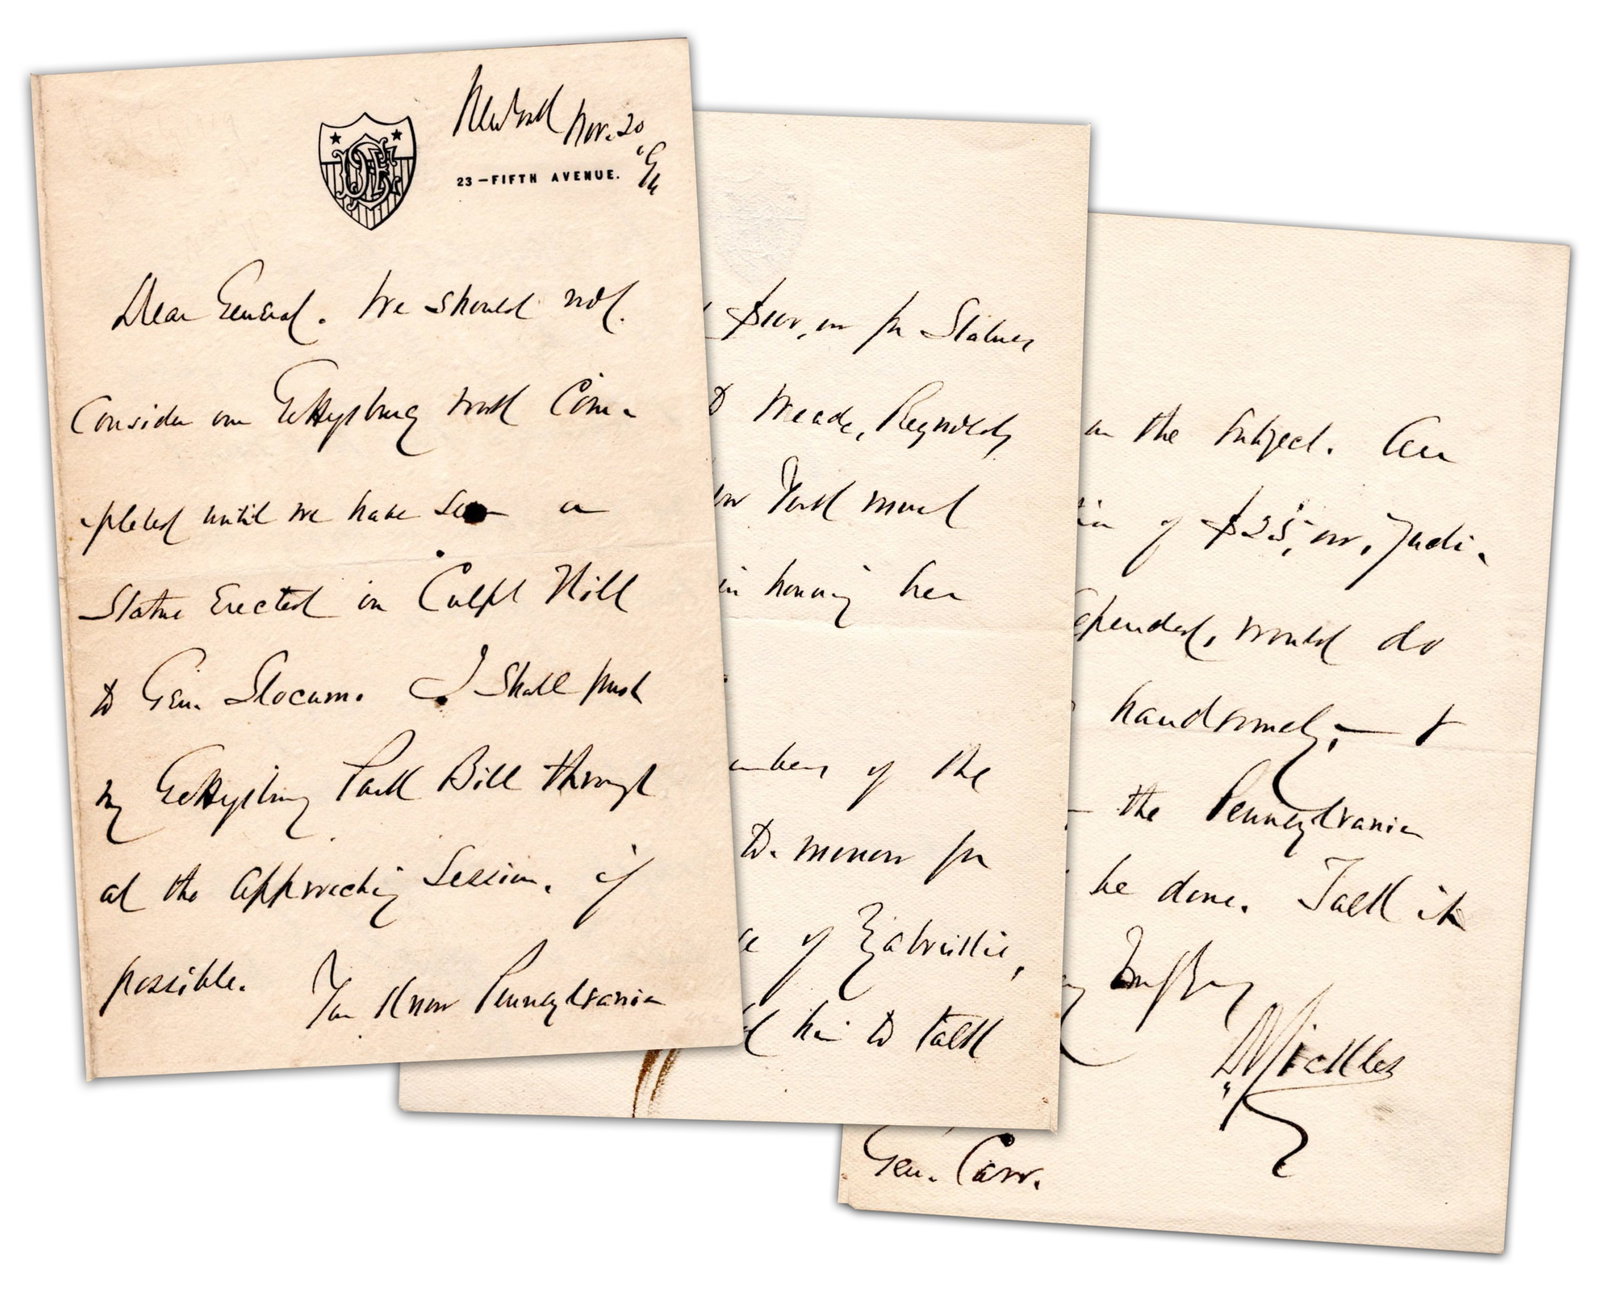 New York Nov. 20
'94
23—FIFTH AVENUE.
Dear General. We should not
Consider our Gettysburg work Com-
-pleted until we have seen a
Statue Erected on Culp's Hill
to Gen. Slocum. I shall push
my Gettysburg Park Bill through
at the approaching Session, if
possible. You know Pennsylvania
$100,000 for Statues
to Meade, Reynolds
York must
in honoring her
of the
to-morrow for
of Zabriskie,
him to talk
on the subject. An
of $25,000, judi-
would do
handsomely, — &
— the Pennsylvania
be done. Talk it
D Sickles
Gen. Carr.